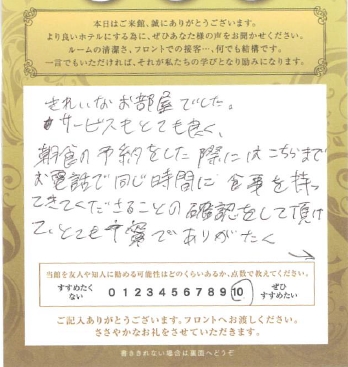 本日はご来館、誠にありがとうございます。
より良いホテルにする為に、ぜひあなた様の声をお聞かせください。
ルームの清潔さ、フロントでの接客…、何でも結構です。
一言でもいただければ、それが私たちの学びとなり励みになります。
きれいなお部屋でした。
サービスもとても良く、
朝食の予約をした際にはこちらまで
お電話で同じ時間に食事を持っ
てきてくださることの確認をして頂け
て、とても丁寧でありがたく
当館を友人や知人に勧める可能性はどのくらいあるか、点数で教えてください。
すすめたく
ない
0 1 2 3 4 5 6 7 8 9 10
ぜひ
すすめたい
ご記入ありがとうございます。フロントへお渡しください。
ささやかなお礼をさせていただきます。
書ききれない場合は裏面へどうぞ